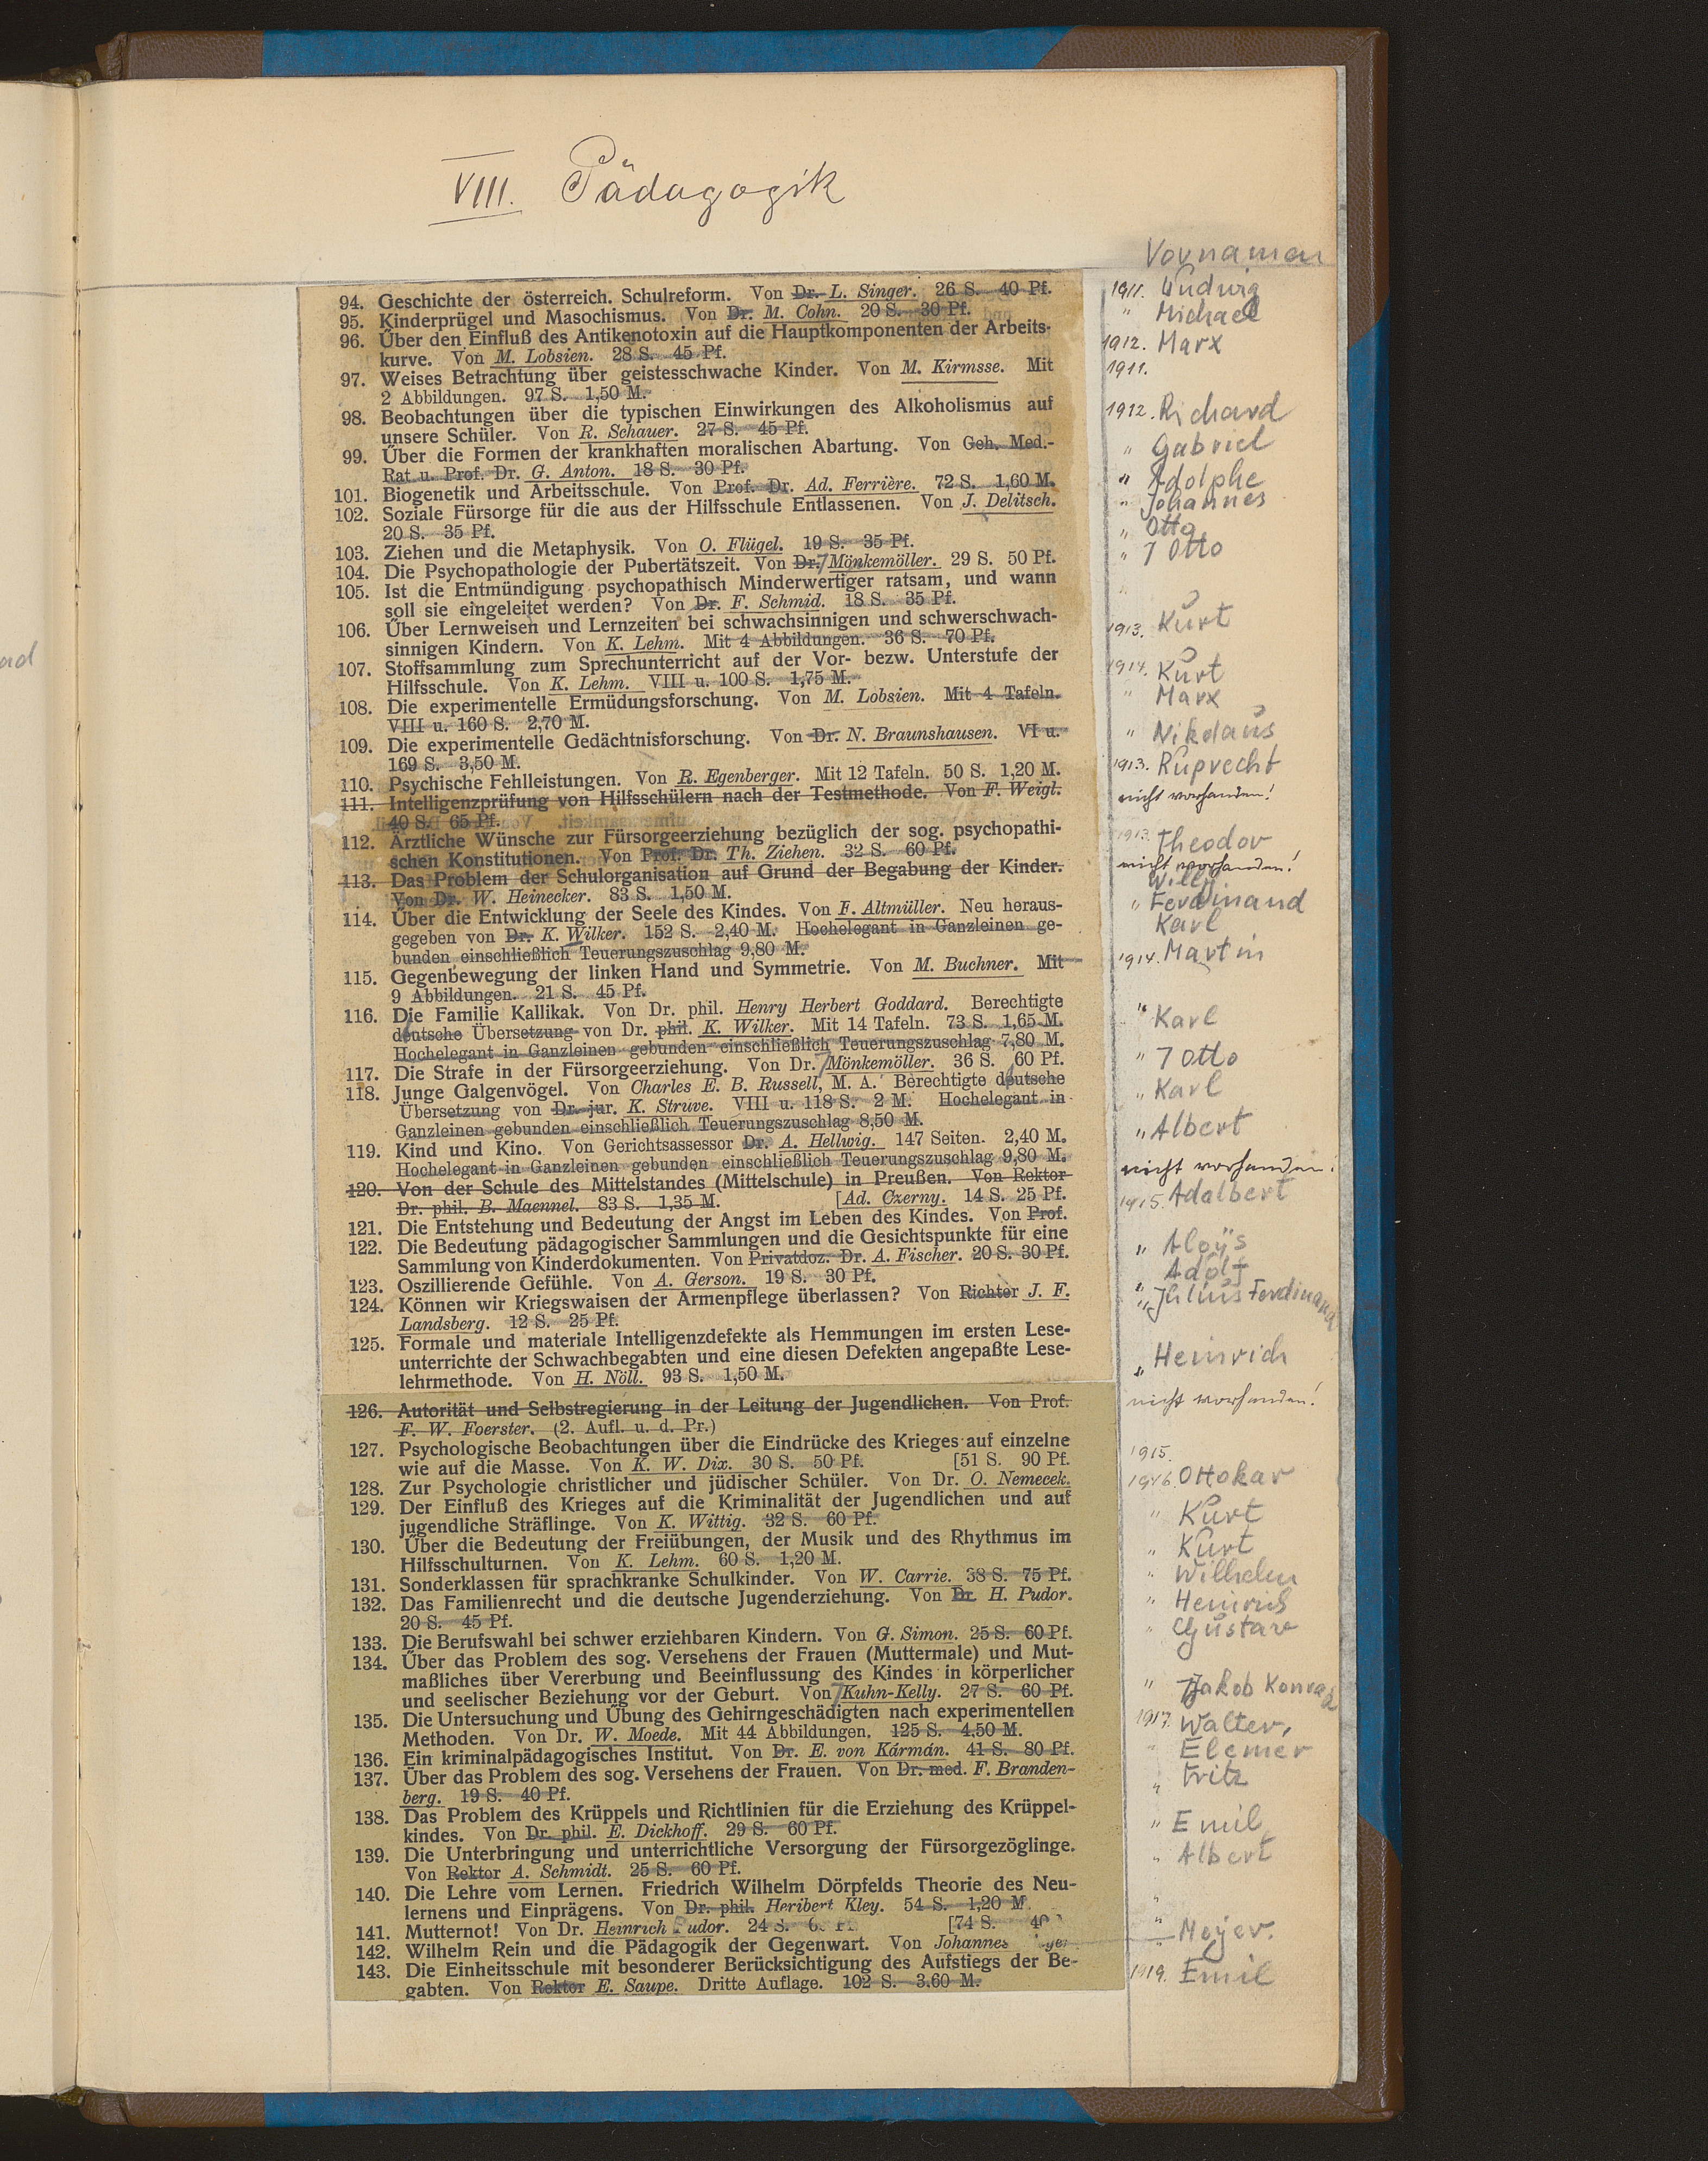 VIII. Pädagogik
Vornamen
94. Geschichte der österreich. Schulreform. Von Dr. L. Singer. 26 S. 40 Pf. 1911. Ludwig
95. Kinderprügel und Masochismus. Von Dr. M. Cohn. 20 S. 30 Pf. " Michael
96. Über den Einfluß des Antikenotoxin auf die Hauptkomponenten der Arbeits-
kurve. Von M. Lobsien. 28 S. 45 Pf. 1912. Marx
97. Weises Betrachtung über geistesschwache Kinder. Von M. Kirmsse. Mit 1911.
2 Abbildungen. 97 S. 1,50 M.
98. Beobachtungen über die typischen Einwirkungen des Alkoholismus auf 1912. Richard
unsere Schüler. Von R. Schauer. 27 S. 45 Pf.
99. Über die Formen der krankhaften moralischen Abartung. Von Geh. Med.- " Gabriel
Rat u. Prof. Dr. G. Anton. 18 S. 30 Pf.
101. Biogenetik und Arbeitsschule. Von Prof. Dr. Ad. Ferrière. 72 S. 1,60 M. " Adolphe
102. Soziale Fürsorge für die aus der Hilfsschule Entlassenen. Von J. Delitsch. " Johannes
20 S. 35 Pf.
103. Ziehen und die Metaphysik. Von O. Flügel. 19 S. 35 Pf. " Otto
104. Die Psychopathologie der Pubertätszeit. Von Dr. Mönkemöller. 29 S. 50 Pf. " 7 Otto
105. Ist die Entmündigung psychopathisch Minderwertiger ratsam, und wann "
soll sie eingeleitet werden? Von Dr. F. Schmid. 18 S. 35 Pf.
106. Über Lernweisen und Lernzeiten bei schwachsinnigen und schwerschwach- 1913. Kurt
sinnigen Kindern. Von K. Lehm. Mit 4 Abbildungen. 36 S. 70 Pf.
107. Stoffsammlung zum Sprechunterricht auf der Vor- bezw. Unterstufe der 1914. Kurt
Hilfsschule. Von K. Lehm. VIII u. 100 S. 1,75 M.
108. Die experimentelle Ermüdungsforschung. Von M. Lobsien. Mit 4 Tafeln. " Marx
VIII u. 160 S. 2,70 M.
109. Die experimentelle Gedächtnisforschung. Von Dr. N. Braunshausen. VI u. " Nikolaus
169 S. 3,50 M.
110. Psychische Fehlleistungen. Von R. Egenberger. Mit 12 Tafeln. 50 S. 1,20 M. 1913. Ruprecht
111. Intelligenzprüfung von Hilfsschülern nach der Testmethode. Von F. Weigl. nicht vorhanden!
40 S. 65 Pf.
112. Ärztliche Wünsche zur Fürsorgeerziehung bezüglich der sog. psychopathi- 1913. Theodor
schen Konstitutionen. Von Prof. Dr. Th. Ziehen. 32 S. 60 Pf.
113. Das Problem der Schulorganisation auf Grund der Begabung der Kinder. nicht vorhanden!
Von Dr. W. Heinecker. 83 S. 1,50 M. Willy
114. Über die Entwicklung der Seele des Kindes. Von F. Altmüller. Neu heraus- " Ferdinand
gegeben von Dr. K. Wilker. 152 S. 2,40 M. Hochelegant in Ganzleinen ge- Karl
bunden einschließlich Teuerungszuschlag 9,80 M.
115. Gegenbewegung der linken Hand und Symmetrie. Von M. Buchner. Mit 1914. Martin
9 Abbildungen. 21 S. 45 Pf.
116. Die Familie Kallikak. Von Dr. phil. Henry Herbert Goddard. Berechtigte
deutsche Übersetzung von Dr. phil. K. Wilker. Mit 14 Tafeln. 73 S. 1,65 M. " Karl
Hochelegant in Ganzleinen gebunden einschließlich Teuerungszuschlag 7,80 M.
117. Die Strafe in der Fürsorgeerziehung. Von Dr. Mönkemöller. 36 S. 60 Pf. " 7 Otto
118. Junge Galgenvögel. Von Charles E. B. Russell, M. A. Berechtigte deutsche
Übersetzung von Dr. jur. K. Struve. VIII u. 118 S. 2 M. Hochelegant in " Karl
Ganzleinen gebunden einschließlich Teuerungszuschlag 8,50 M.
119. Kind und Kino. Von Gerichtsassessor Dr. A. Hellwig. 147 Seiten. 2,40 M. " Albert
Hochelegant in Ganzleinen gebunden einschließlich Teuerungszuschlag 9,80 M.
120. Von der Schule des Mittelstandes (Mittelschule) in Preußen. Von Rektor nicht vorhanden!
Dr. phil. B. Maennel. 83 S. 1,35 M. [Ad. Czerny. 14 S. 25 Pf.
121. Die Entstehung und Bedeutung der Angst im Leben des Kindes. Von Prof. 1915. Adalbert
122. Die Bedeutung pädagogischer Sammlungen und die Gesichtspunkte für eine
Sammlung von Kinderdokumenten. Von Privatdoz. Dr. A. Fischer. 20 S. 30 Pf. " Aloÿs
123. Oszillierende Gefühle. Von A. Gerson. 19 S. 30 Pf. " Adolf
124. Können wir Kriegswaisen der Armenpflege überlassen? Von Richter J. F. " Julius Ferdinand
Landsberg. 12 S. 25 Pf.
125. Formale und materiale Intelligenzdefekte als Hemmungen im ersten Lese-
unterrichte der Schwachbegabten und eine diesen Defekten angepaßte Lese- " Heinrich
lehrmethode. Von H. Nöll. 93 S. 1,50 M.
126. Autorität und Selbstregierung in der Leitung der Jugendlichen. Von Prof. nicht vorhanden!
F. W. Foerster. (2. Aufl. u. d. Pr.)
127. Psychologische Beobachtungen über die Eindrücke des Krieges auf einzelne 1915.
wie auf die Masse. Von K. W. Dix. 30 S. 50 Pf. [51 S. 90 Pf.
128. Zur Psychologie christlicher und jüdischer Schüler. Von Dr. O. Nemecek. 1916. Ottokar
129. Der Einfluß des Krieges auf die Kriminalität der Jugendlichen und auf
jugendliche Sträflinge. Von K. Wittig. 32 S. 60 Pf. " Kurt
130. Über die Bedeutung der Freiübungen, der Musik und des Rhythmus im
Hilfsschulturnen. Von K. Lehm. 60 S. 1,20 M. " Kurt
131. Sonderklassen für sprachkranke Schulkinder. Von W. Carrie. 38 S. 75 Pf. " Wilhelm
132. Das Familienrecht und die deutsche Jugenderziehung. Von Dr. H. Pudor. " Heinrich
20 S. 45 Pf.
133. Die Berufswahl bei schwer erziehbaren Kindern. Von G. Simon. 25 S. 60 Pf. " Gustav
134. Über das Problem des sog. Versehens der Frauen (Muttermale) und Mut-
maßliches über Vererbung und Beeinflussung des Kindes in körperlicher
und seelischer Beziehung vor der Geburt. Von Kuhn-Kelly. 27 S. 60 Pf. " Jakob Konrad
135. Die Untersuchung und Übung des Gehirngeschädigten nach experimentellen
Methoden. Von Dr. W. Moede. Mit 44 Abbildungen. 125 S. 4,50 M. 1917. Walter,
136. Ein kriminalpädagogisches Institut. Von Dr. E. von Kármán. 41 S. 80 Pf. " Elemér
137. Über das Problem des sog. Versehens der Frauen. Von Dr. med. F. Branden- " Fritz
berg. 19 S. 40 Pf.
138. Das Problem des Krüppels und Richtlinien für die Erziehung des Krüppel-
kindes. Von Dr. phil. E. Dickhoff. 29 S. 60 Pf. " Emil
139. Die Unterbringung und unterrichtliche Versorgung der Fürsorgezöglinge.
Von Rektor A. Schmidt. 25 S. 60 Pf. " Albert
140. Die Lehre vom Lernen. Friedrich Wilhelm Dörpfelds Theorie des Neu-
lernens und Einprägens. Von Dr. phil. Heribert Kley. 54 S. 1,20 M "
141. Mutternot! Von Dr. Heinrich Pudor. 24 S. [74 S. "
142. Wilhelm Rein und die Pädagogik der Gegenwart. Von Johannes " Meyer.
143. Die Einheitsschule mit besonderer Berücksichtigung des Aufstiegs der Be-
gabten. Von Rektor E. Saupe. Dritte Auflage. 102 S. 3,60 M. 1919. Emil